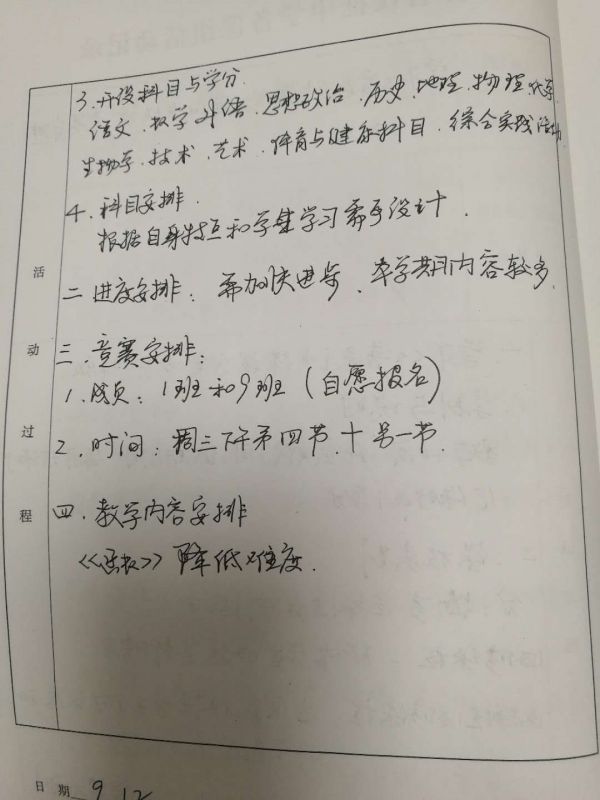 3.开设科目与学分.
语文、数学、外语、思想政治、历史、地理、物理、化学、
生物学、技术、艺术、体育与健康科目、综合实践活动
4.科目安排.
根据自身特点和学生学习需求设计.
二 进度安排：需加快进步、本学期内容较多.
三.竞赛安排：
1.成员：1班和9班（自愿报名）
2.时间：周三下午第四节、十 另一节.
四.教学内容安排
降低难度.
活
动
过
程
日 期 9.12